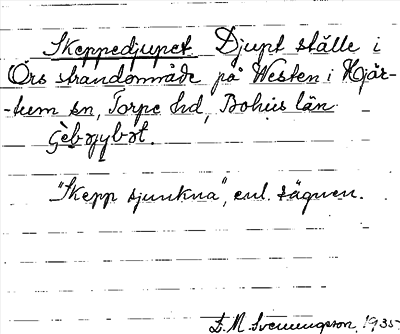 Skeppedjupet. Djupt ställe i
Örs strandområde på Westen i Hjär-
-tum sn, Torpe hd, Bohus län
"Skepp sjunkna", enl. sägnen.
E. M. Svenungsson, 1935